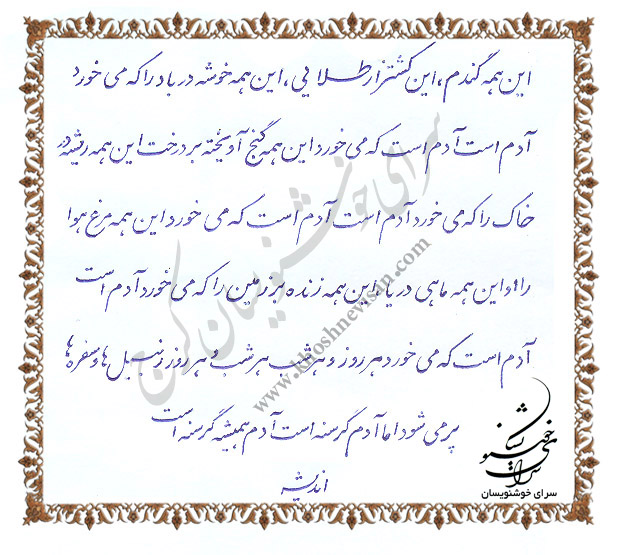 این همه گندم، این کشتزار طلایی، این همه خوشه در باد را که می خورد
آدم است آدم است که می خورد این همه گنج آویخته بر درخت این همه ریشه در
خاک را که می خورد آدم است آدم است که می خورد این همه مرغ هوا
را و این همه ماهی دریا را این همه زنده بر زمین را که می خورد آدم است
آدم است که می خورد هر روز و هر شب هر شب و هر روز زنبیل ها و سفره ها
پر می شود اما آدم گرسنه است آدم همیشه گرسنه است
اندیشه
سرای خوشنویسان
سرای خوشنویسان
سرای خوشنویسان کرج
www.khoshnevisan.com